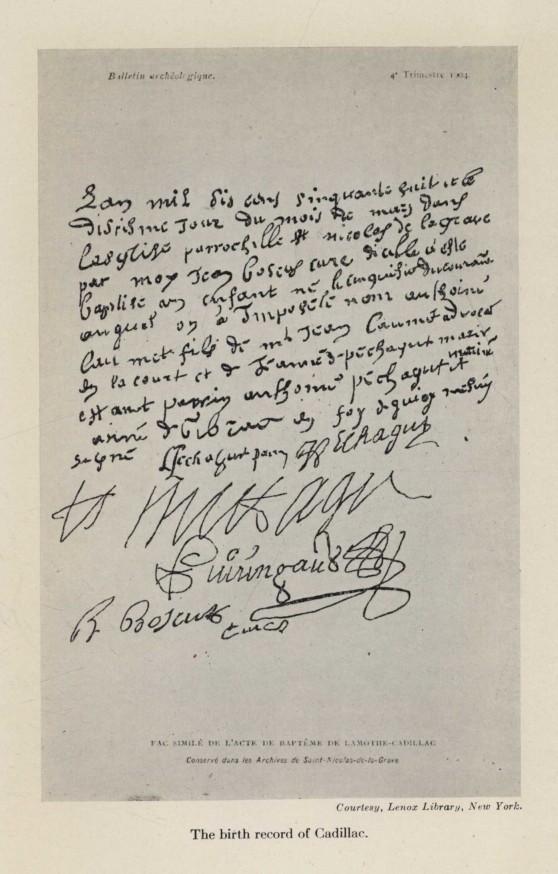 Bulletin archéologique. 4e Trimestre 1904.
Lan mil sis cens sinquante huit et le
disiesme jour du mois de mars dans
lesglise parrochille st nicolas de lagrave
par moy Jean boscus curé dicelle a esté
baptisé un enfant né le cinquiesme du courant
auquel on a Imposé le nom anthoine
laumet fils de mr Jean Laumet advocat
en la court et de Jeanne pechagut mariés
estant parrin anthoine pechagut et marrine
anne de en foy dequoy me suis
signé Pechagut parrin Pechagut
Boscus curé
FAC SIMILÉ DE L'ACTE DE BAPTÊME DE LAMOTHE-CADILLAC
Conservé dans les Archives de Saint-Nicolas-de-la-Grave
Courtesy, Lenox Library, New York.
The birth record of Cadillac.